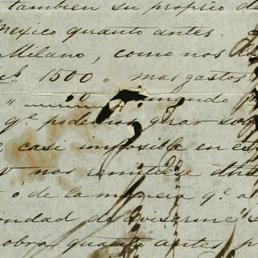 tambien su proprio d
Mexico quanto antes.
Milano, como nos
1500 " mas gastos
mundo
q.e podamos girar so
e casi imposible en es
nos remitiese
ó de la manera q.e a
ondad de avisarme
obra quanto antes p